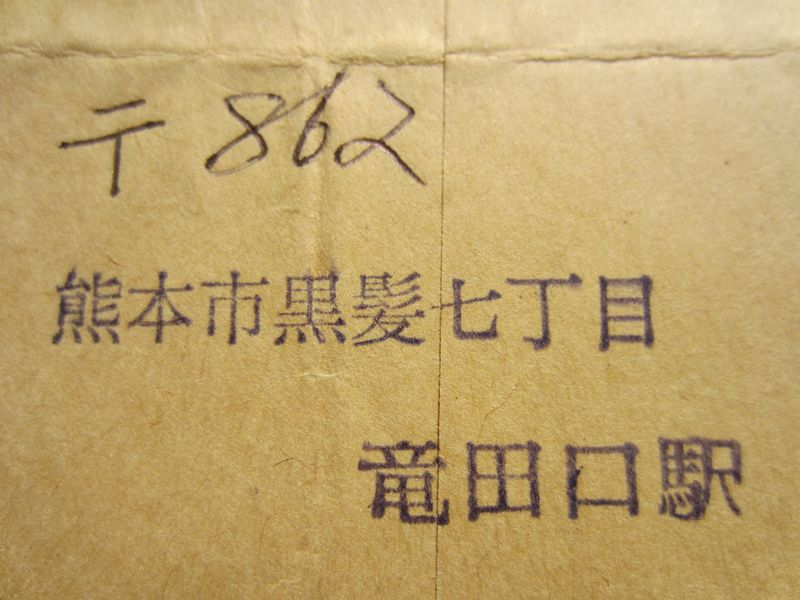 〒862
熊本市黒髪七丁目
竜田口駅